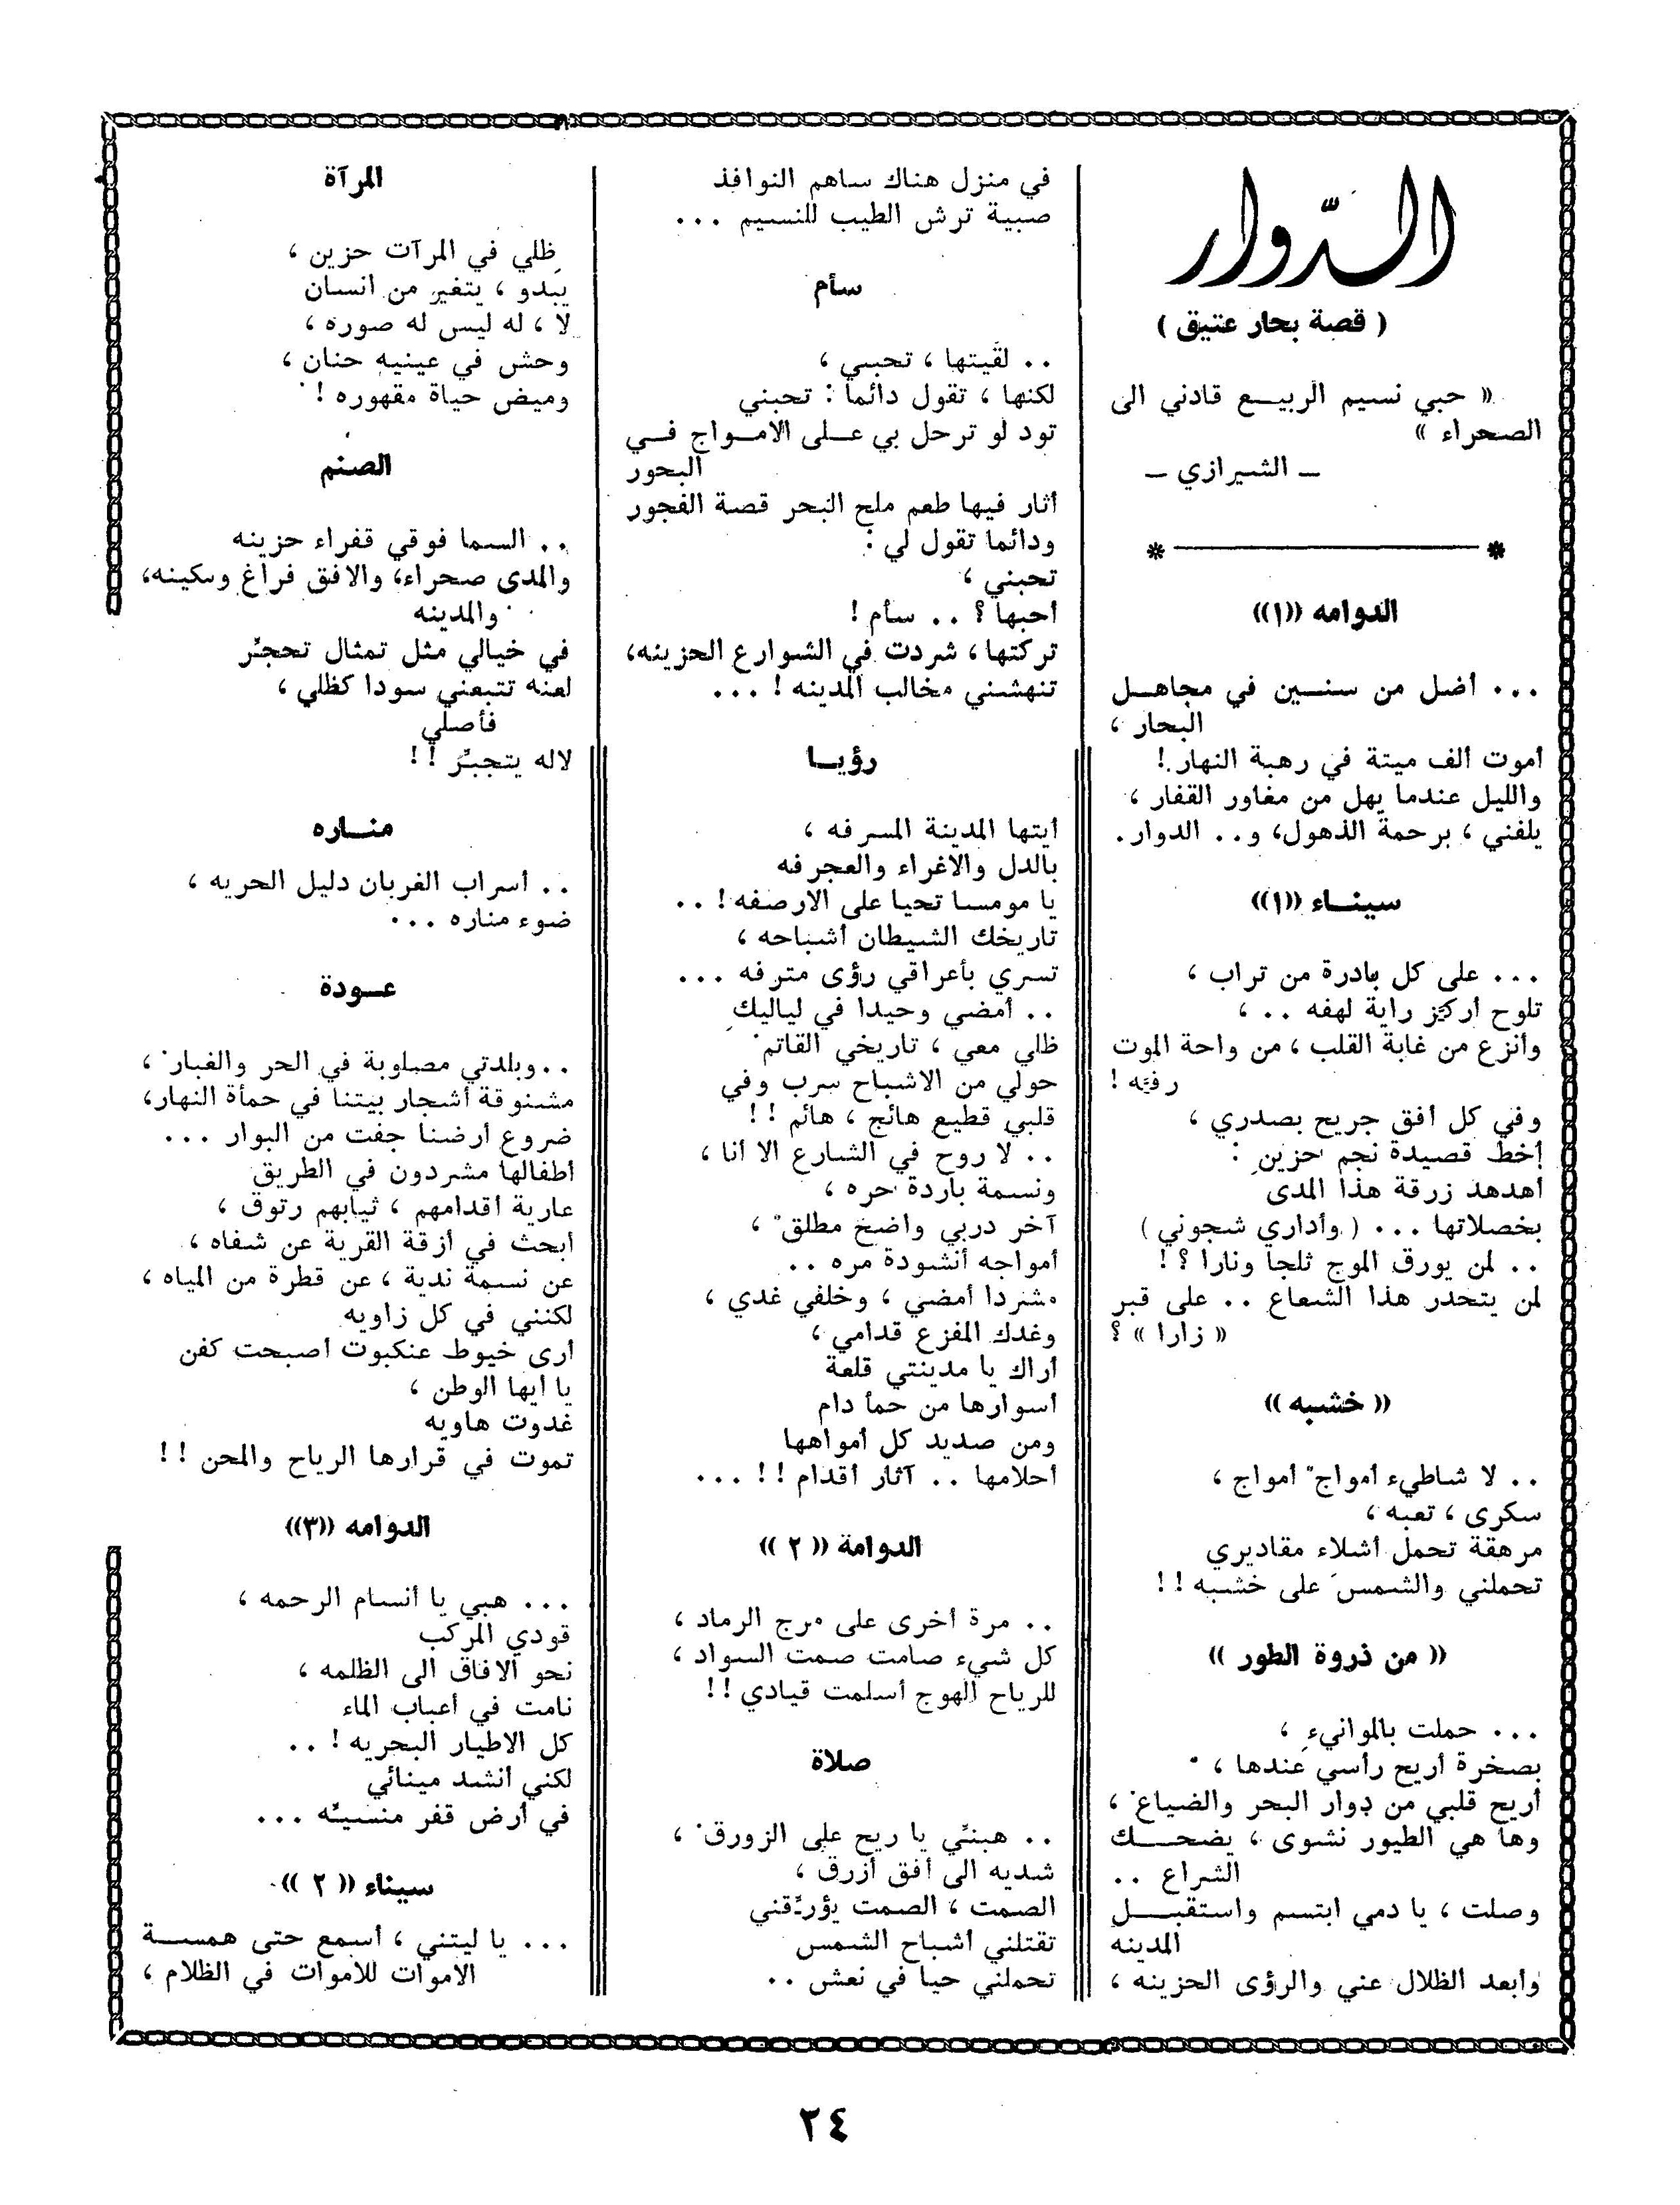 الدّوار
( قصة بحار عتيق )
« حبي نسيم الربيع قادني الى
الصحراء »
ــ الشيرازي ــ
* ـــــــــــ *
الدوامه ((١))
... أضل من سنين في مجاهل
البحار ،
أموت ألف ميتة في رهبة النهار !
والليل عندما يهل من مغاور القفار ،
يلفني ، برحمة الذهول، و.. الدوار.
سيناء ((١))
... على كل بادرة من تراب ،
تلوح أركز راية لهفه .. ،
وأنزع من غابة القلب ، من واحة الموت
رفه !
وفي كل أفق جريح بصدري ،
أخط قصيدة نجم حزين :
أهدهد زرقة هذا المدى
بخصلاتها ... ( وأداري شجوني )
.. لمن يورق الموج ثلجا ونارا ؟ !
لمن يتحدر هذا الشعاع .. على قبر
« زارا » ؟
(( خشبه ))
.. لا شاطيء أمواج أمواج ،
سكرى ، تعبه ،
مرهقة تحمل أشلاء مقاديري
تحملني والشمس على خشبه ! !
(( من ذروة الطور ))
... حملت بالموانيء ،
بصخرة أريح رأسي عندها ،
أريح قلبي من دوار البحر والضياع ،
وها هي الطيور نشوى ، يضحك
الشراع ..
وصلت ، يا دمي ابتسم واستقبل
المدينه
وأبعد الظلال عني والرؤى الحزينه ،
في منزل هناك ساهم النوافذ
صبية ترش الطيب للنسيم ...
سأم
.. لقيتها ، تحبني ،
لكنها ، تقول دائما : تحبني
تود لو ترحل بي على الامواج في
البحور
أثار فيها طعم ملح البحر قصة الفجور
ودائما تقول لي :
تحبني ،
أحبها ؟ .. سأم !
تركتها ، شردت في الشوارع الحزينه،
تنهشني مخالب المدينه ! ...
رؤيا
أيتها المدينة المسرفه ،
بالدل والاغراء والعجرفه
يا مومسا تحيا على الارصفه ! ..
تاريخك الشيطان أشباحه ،
تسري بأعراقي رؤى مترفه ...
.. أمضي وحيدا في لياليكِ
ظلي معي ، تاريخي القاتم
حولي من الاشباح سرب وفي
قلبي قطيع هائج ، هائم ! !
.. لا روح في الشارع الا أنا ،
ونسمة باردة حره ،
آخر دربي واضح مطلق ،
أمواجه أنشودة مره ..
مشردا أمضي ، وخلفي غدي ،
وغدك المفزع قدامي ،
أراك يا مدينتي قلعة
أسوارها من حمأ دام
ومن صديد كل أمواهها
أحلامها .. آثار أقدام ! ! ...
الدوامة (( ٢ ))
.. مرة أخرى على مرج الرماد ،
كل شيء صامت صمت السواد ،
للرياح الهوج أسلمت قيادي ! !
صلاة
.. هبّي يا ريح على الزورق ،
شديه الى أفق أزرق ،
الصمت ، الصمت يؤرّقني
تقتلني أشباح الشمس
تحملني حيا في نعش ..
المرآة
ظلي في المرآت حزين ،
يبدو ، يتغير من انسان
لا ، له ليس له صوره ،
وحش في عينيه حنان ،
وميض حياة مقهوره !
الصنم
.. السما فوقي قفراء حزينه
والمدى صحراء، والافق فراغ وسكينه،
والمدينه
في خيالي مثل تمثال تحجّر
لعنه تتبعني سودا كظلي ،
فأصلي
لاله يتجبّر ! !
مناره
.. أسراب الغربان دليل الحريه ،
ضوء مناره ...
عودة
.. وبلدتي مصلوبة في الحر والغبار ،
مشنوقة أشجار بيتنا في حمأة النهار،
ضروع أرضنا جفت من البوار ...
أطفالها مشردون في الطريق
عارية أقدامهم ، ثيابهم رتوق ،
أبحث في أزقة القرية عن شفاه ،
عن نسمة ندية ، عن قطرة من المياه ،
لكنني في كل زاويه
أرى خيوط عنكبوت أصبحت كفن
يا أيها الوطن ،
غدوت هاويه
تموت في قرارها الرياح والمحن ! !
الدوامه ((٣))
... هبي يا أنسام الرحمه ،
قودي المركب
نحو الافاق الى الظلمه ،
نامت في أعباب الماء
كل الاطيار البحريه ! ..
لكني أنشد مينائي
في أرض قفر منسيّه ...
سيناء (( ٢ ))
... يا ليتني ، أسمع حتى همسة
الاموات للاموات في الظلام ،
٢٤